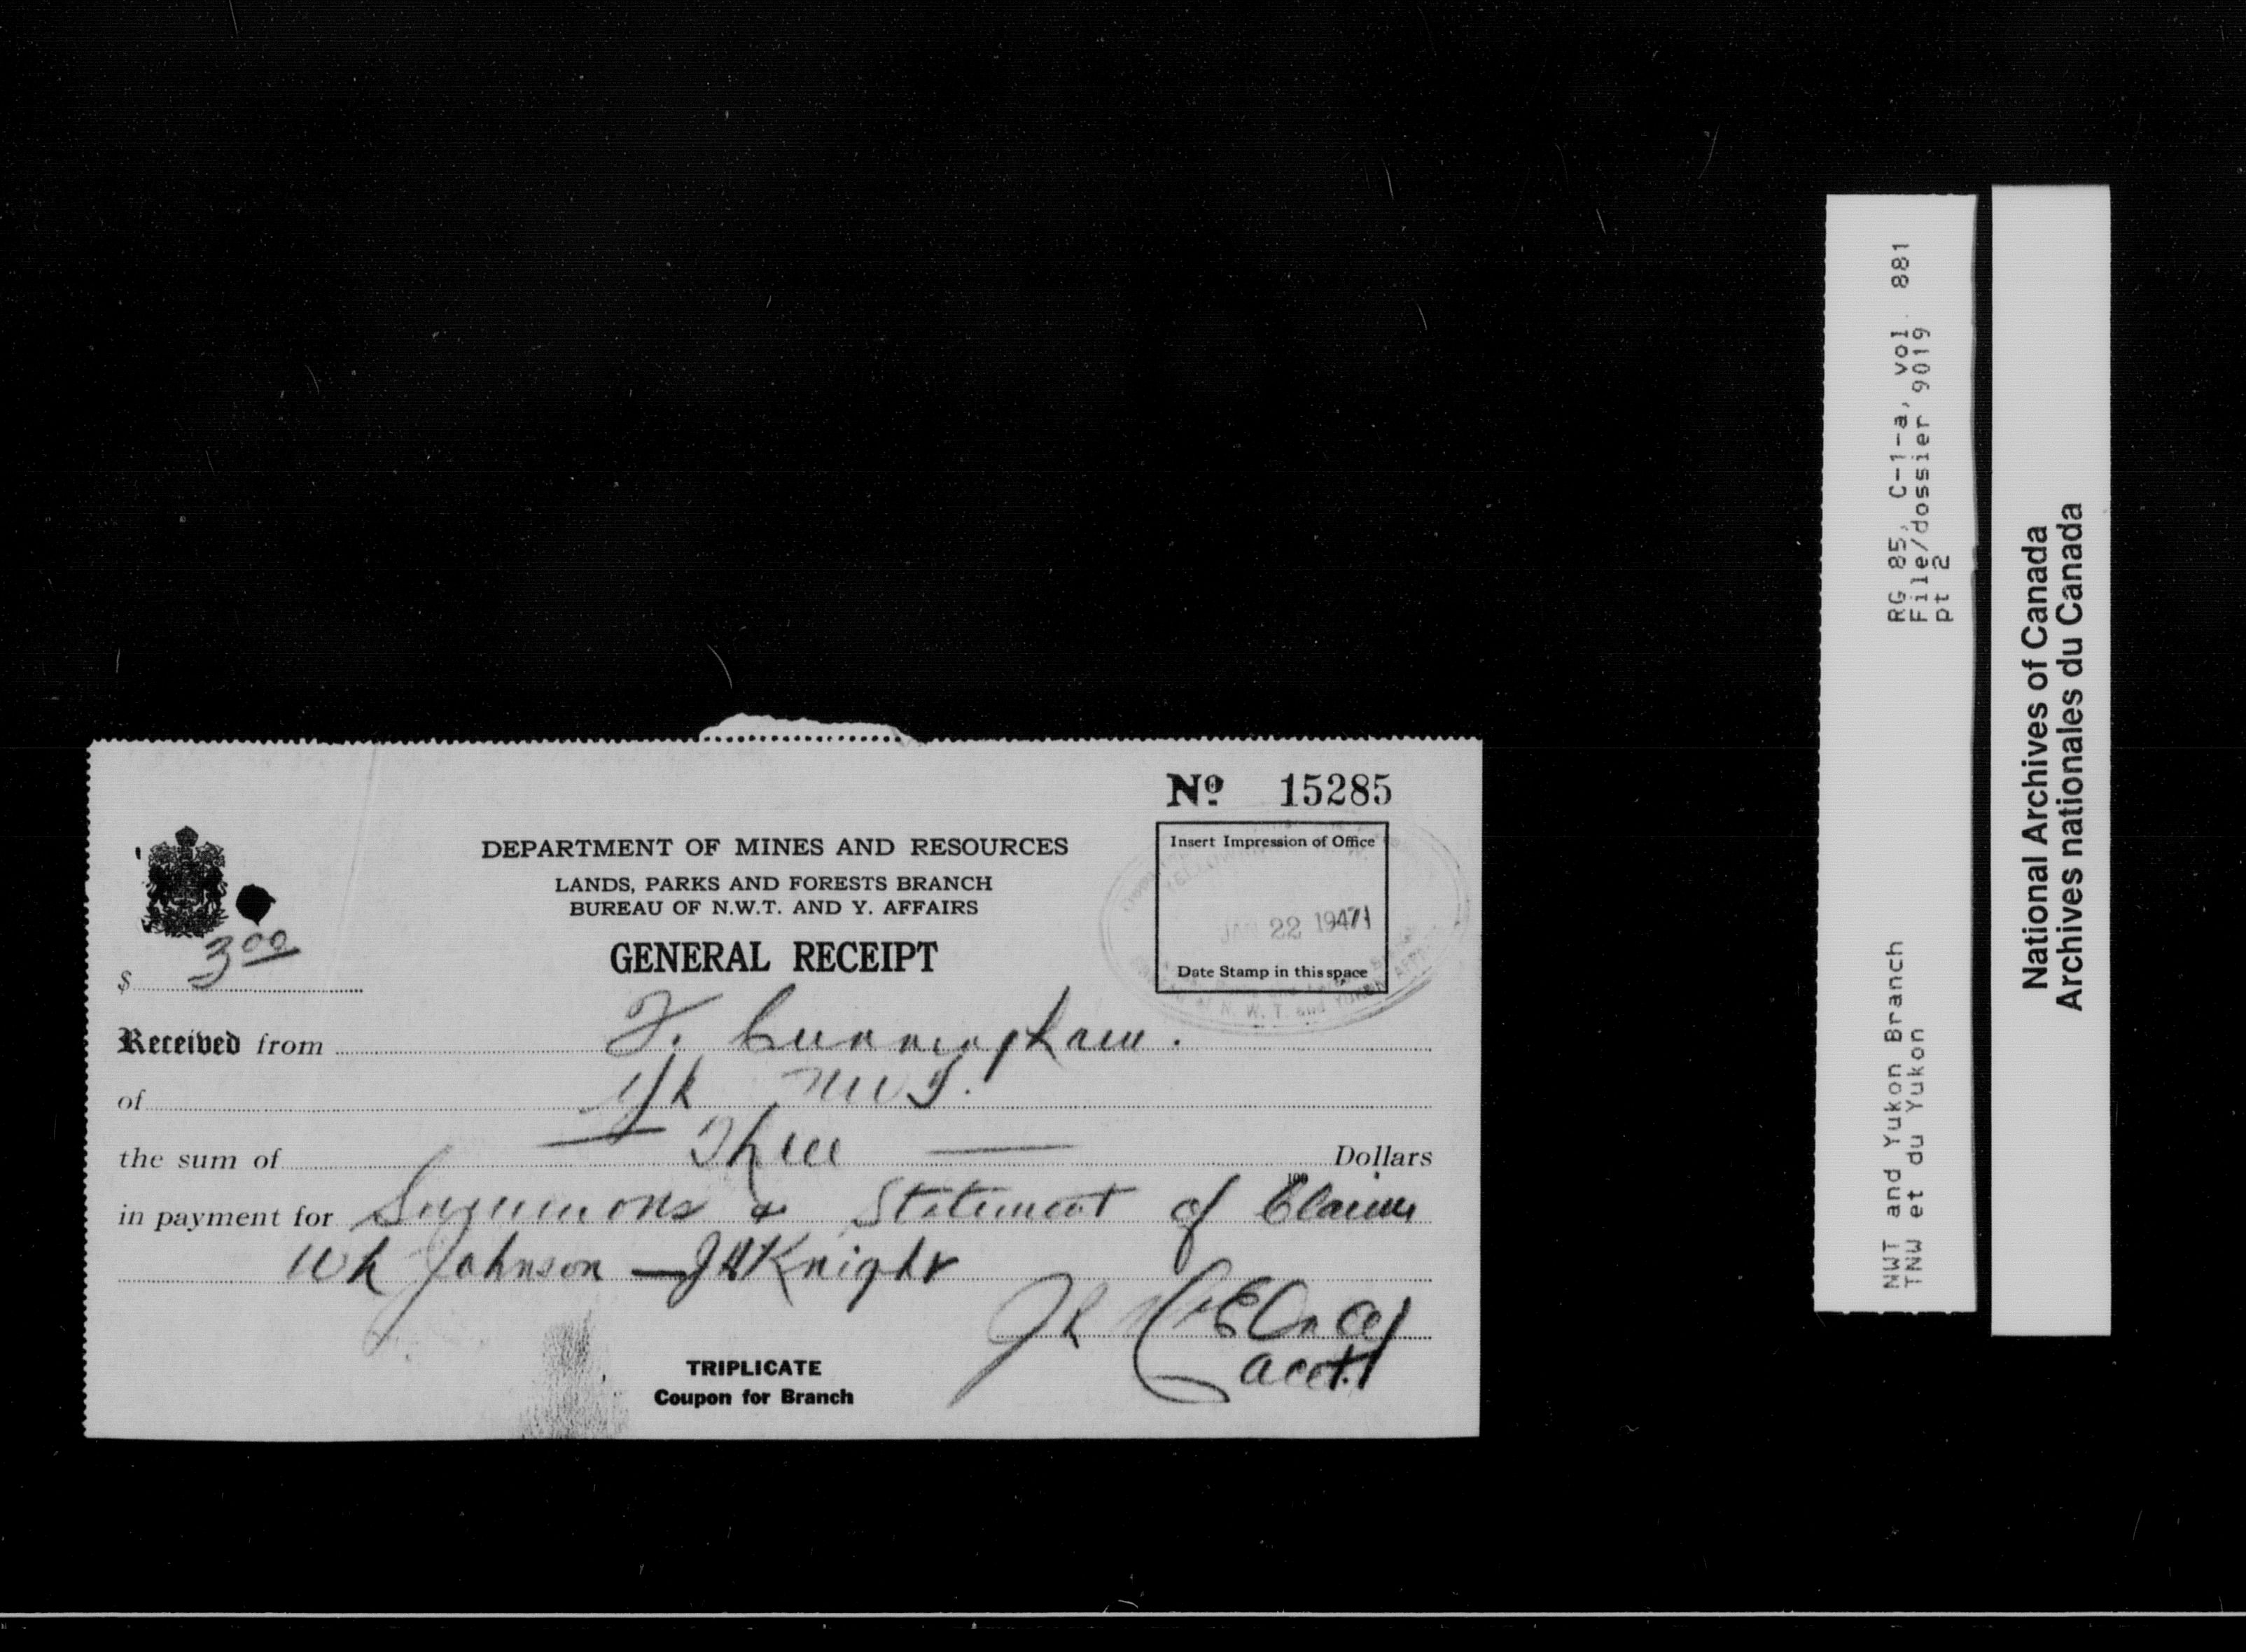 No 15285
DEPARTMENT OF MINES AND RESOURCES
LANDS, PARKS AND FORESTS BRANCH
BUREAU OF N.W.T. AND Y. AFFAIRS
GENERAL RECEIPT
Insert Impression of Office
JAN 22 1947
Date Stamp in this space
N. W. T. and
$ 3 00
Received from F. Cunningham.
of Yk NWT.
the sum of Three Dollars
100
in payment for Summons & Statement of Claim
Wh Johnson — JH Knight
Acctt
TRIPLICATE
Coupon for Branch
NWT and Yukon Branch RG 85, C-1-a, vol. 881
TNW et du Yukon File/dossier 9019
pt 2
National Archives of Canada
Archives nationales du Canada